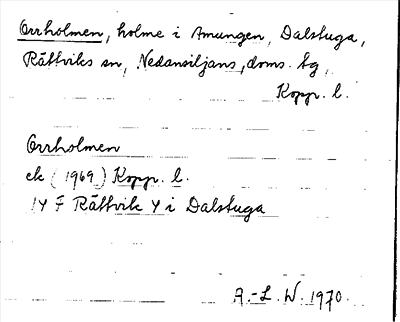 Orrholmen, holme i Amungen, Dalstuga,
Rättviks sn, Nedansiljans, doms. tg,
Kopp. l.
Orrholmen
ek (1969) Kopp. l.
14 F Rättvik Y i Dalstuga
A.-L. W. 1970.